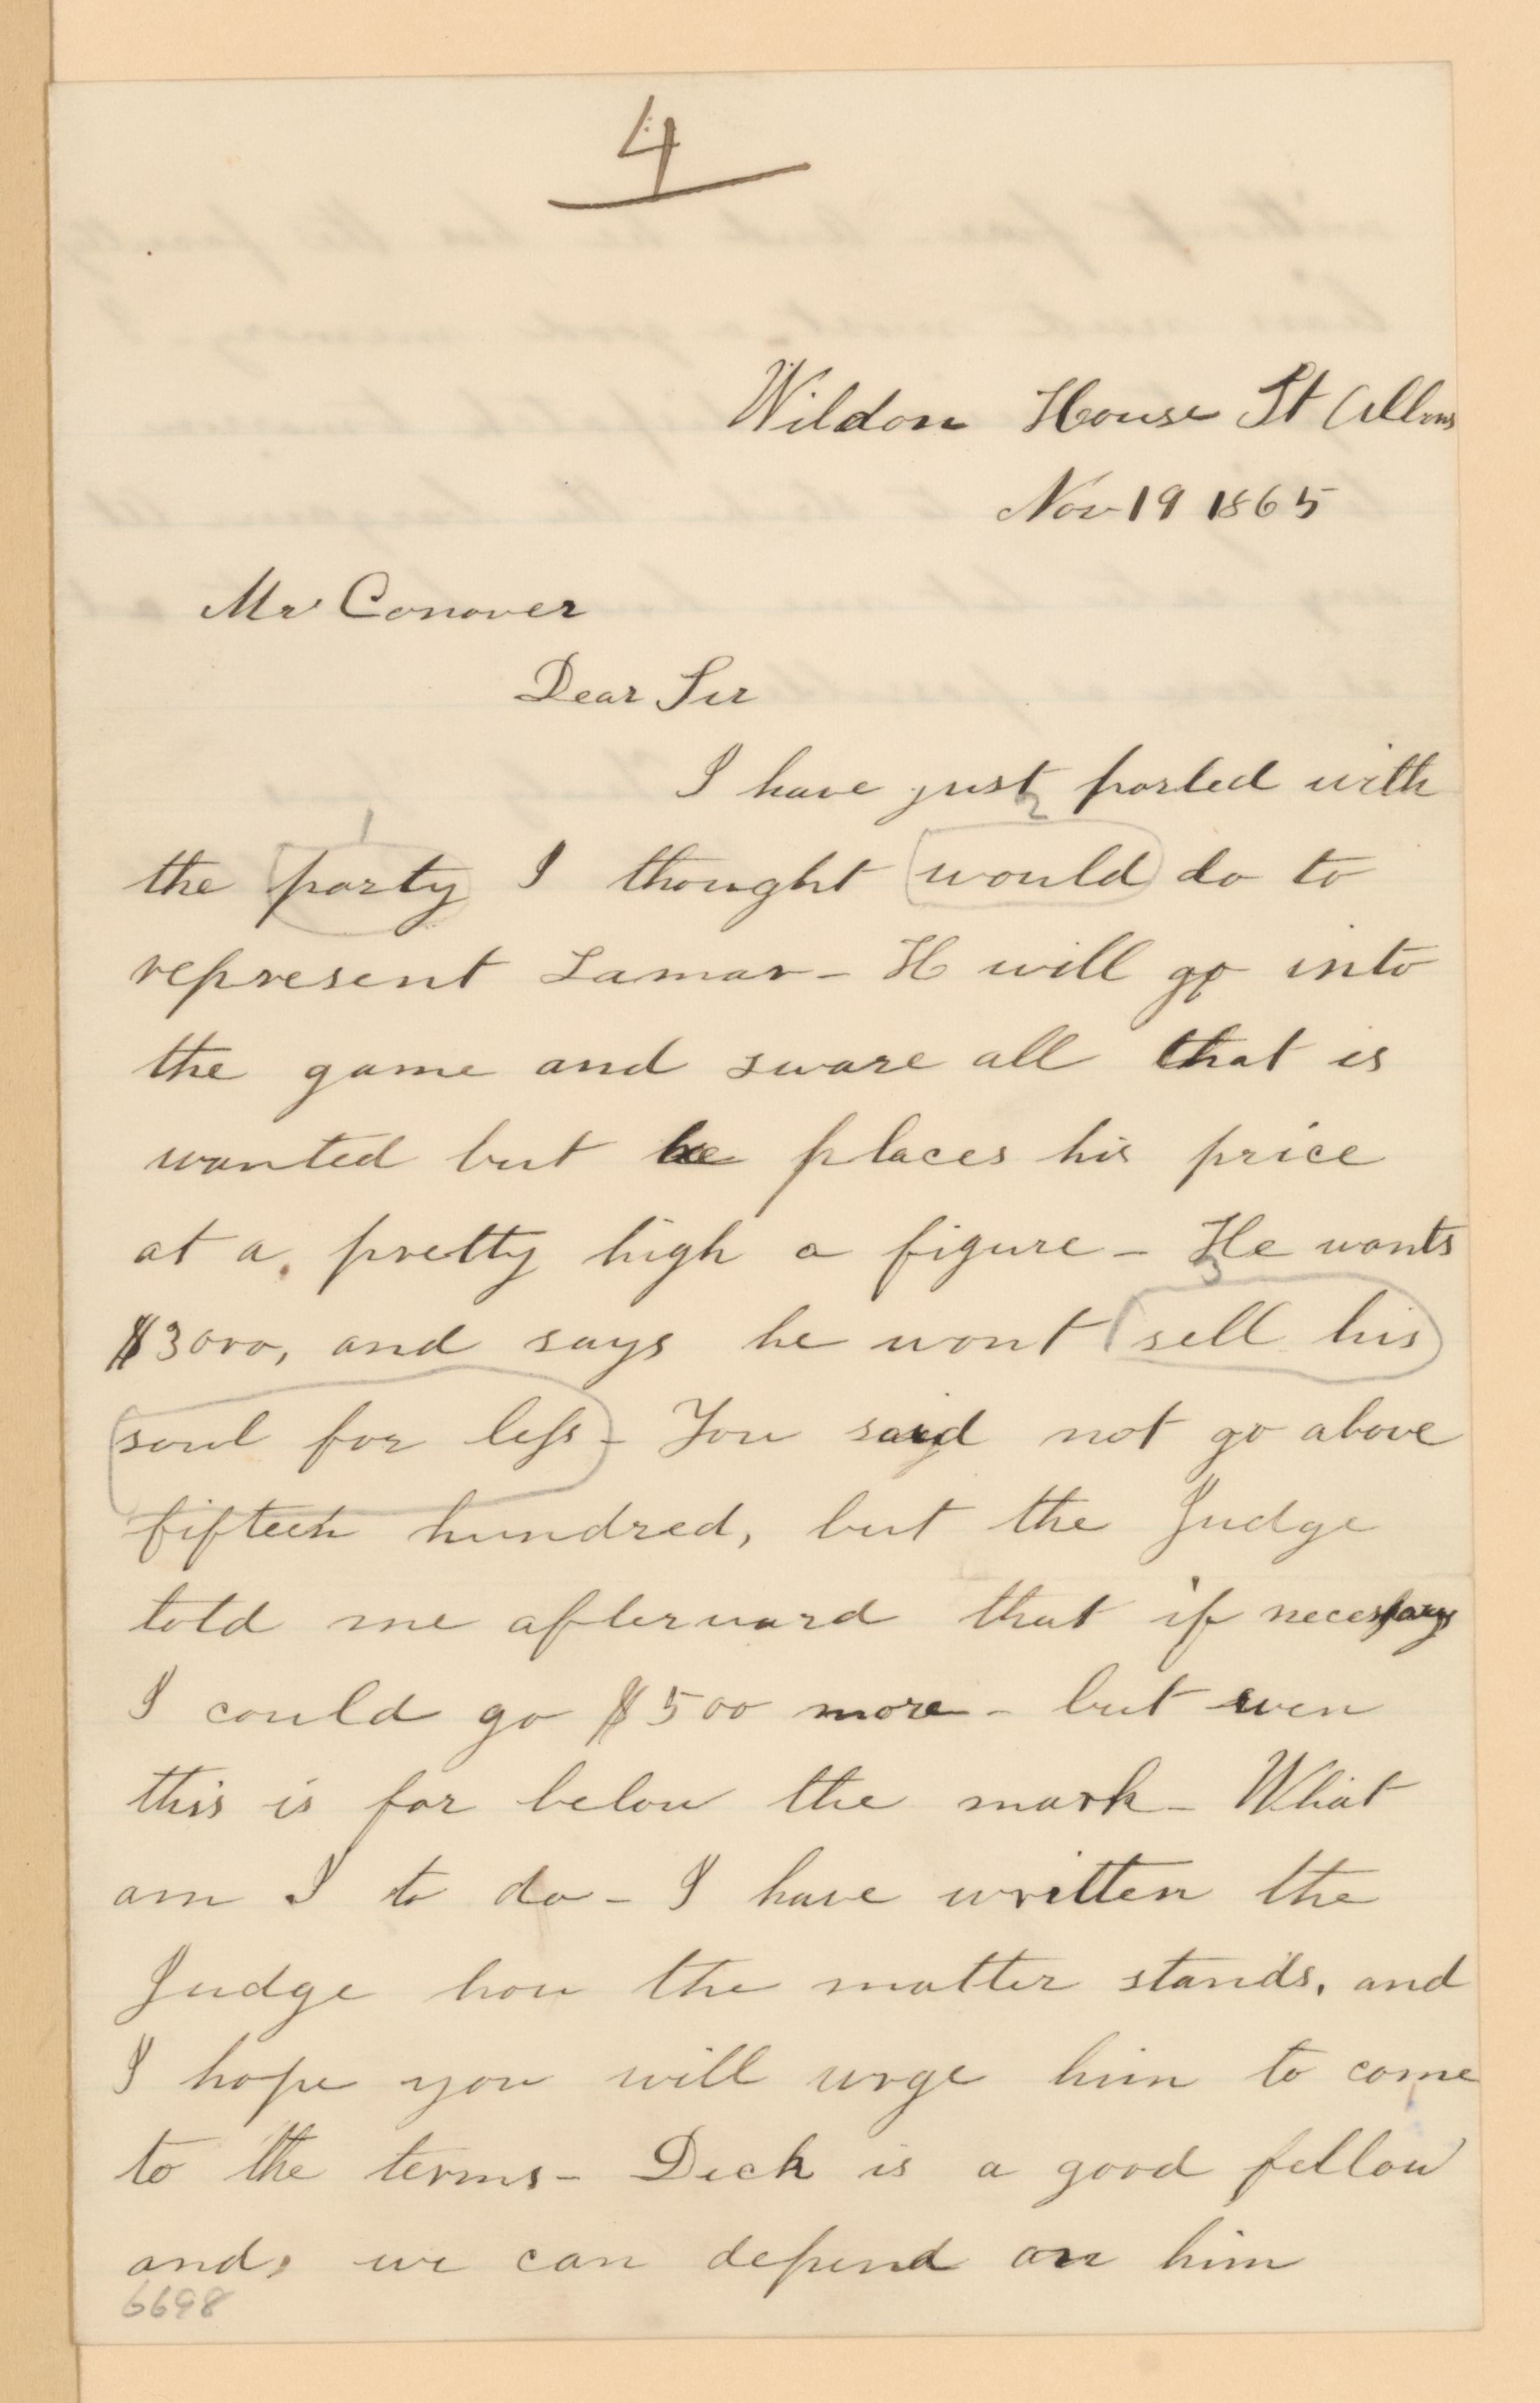 4
Wildon House St Albans
Nov 19 1865
Mr Conover
Dear Sir
I have just parted with
1 2
the party I thought would do to
represent Lamar - H will go into
the game and sware all that is
wanted but he places his price
at a pretty high a figure - He wants
3
$3000, and says he wont sell his
soul for less - You said not go above
fifteen hundred, but the Judge
told me afterward that if necessary
I could go $500 more - but even
this is far below the mark - What
am I to do - I have written the
Judge how the matter stands, and
I hope you will urge him to come
to the terms - Dick is a good fellow
and, we can depend on him
6698